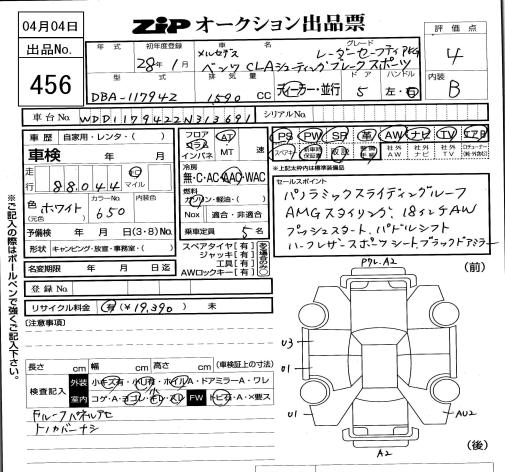 04月04日
ZIP オークション出品票
出品No.
456
年式 初年度登録 車名 グレード
28年1月
メルセデス レーダーセーフティPKG
ベンツ CLAシューティングブレーク スポーツ
型式 排気量 ドア ハンドル
DBA-117942 1,590 CC ディーラー・並行 5 左・右
評価点
4
内装
B
車台No. WDD1179422N313691
シリアルNo.
車歴 自家用・レンタ・( )
車検 年 月
走行 88,044 km マイル
色(元色) ホワイト カラーNo. 650 内装色
予備検 年 月 日(3・8)No.
形状 キャンピング・放置・事務室・( )
名変期限 年 月 日迄
登録No.
リサイクル料金 有(¥19,390) 未
フロア コラム インパネ AT MT 速
冷房
無・C・AC・AAC・WAC
燃料
ガソリン・軽油・( )
Nox 適合・非適合
乗車定員 5名
スペアタイヤ[有]
ジャッキ[有]
工具[有]
AWロックキー[有]
PS PW SR 革 AW ナビ TV エアB
スペアキー 新車時保証書 取説 社外AW 社外ナビ 社外TV
セールスポイント
パノラミックスライディングルーフ
AMGスタイリング、18インチAW
プッシュスタート、パドルシフト
ハーフレザースポーツシート、ブラックドアミラー
※ご記入の際はボールペンで強くご記入下さい。
[注意事項]
長さ cm 幅 cm 高さ cm (車検証上の寸法)
検査記入 外装 小キズ有・小U有・ホイルA・ドアミラーA・ワレ
室内 コゲ・A・ヨゴレ・スレ FW トビ石・A・×要ス
Fルーフパネルアセ
トノカバーナシ
(前)
アクル、A2
U3
U1
U1
AU2
A2
(後)